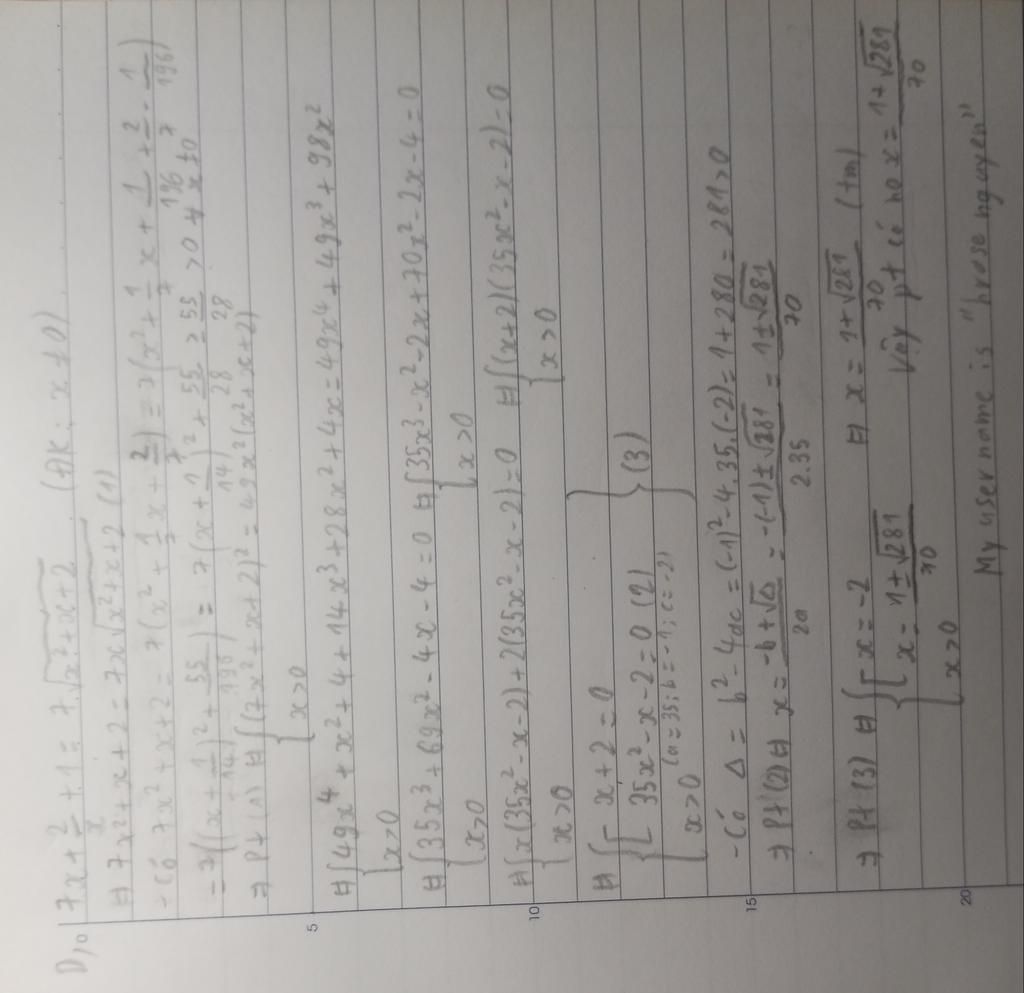 D,o 7x + 2/x + 1 = 7.√(x² + x + 2) (ĐK: x ≠ 0).
⇔ 7x² + x + 2 = 7x√(x² + x + 2) (1)
- Có 7x² + x + 2 = 7(x² + 1/7 x + 2/7) = 7(x² + 1/7 x + 1/196 + 2/7 - 1/196)
= 7((x + 1/14)² + 55/196) = 7(x + 1/14)² + 55/28 ≥ 55/28 > 0 ∀ x ≠ 0
⇒ Pt (1) ⇔ { (7x² + x + 2)² = 49x²(x² + x + 2)
x > 0
⇔ { 49x⁴ + x² + 4 + 14x³ + 28x² + 4x = 49x⁴ + 49x³ + 98x²
x > 0
⇔ { 35x³ + 69x² - 4x - 4 = 0 ⇔ { 35x³ - x² - 2x + 70x² - 2x - 4 = 0
x > 0 x > 0
⇔ { x(35x² - x - 2) + 2(35x² - x - 2) = 0 ⇔ { (x + 2)(35x² - x - 2) = 0
x > 0 x > 0
⇔ { [ x + 2 = 0
35x² - x - 2 = 0 (2) } (3)
x > 0 (a = 35; b = -1; c = -2)
- Có Δ = b² - 4ac = (-1)² - 4.35.(-2) = 1 + 280 = 281 > 0
⇒ Pt (2) ⇔ x = (-b ± √Δ)/2a = (-(-1) ± √281)/2.35 = (1 ± √281)/70
⇒ Pt (3) ⇔ { [ x = -2
x = (1 ± √281)/70 ⇔ x = (1 + √281)/70 (tm)
x > 0 Vậy pt có no x = (1 + √281)/70
My username is "hrose nguyen"